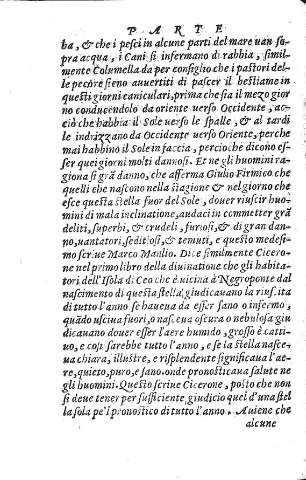 PARTE
ba, & che i pesci in alcune parti del mare uan so-
pra acqua, i Cani si infermano di rabbia, simil-
mente Columella da per consiglio che i pastori del-
le pecore sieno auuertiti di pascer il bestiame in
questi giorni caniculari, prima che sia il mezo gior
no conducendolo da oriente uerso Occidente, ac-
ciò che habbia il Sole uerso le spalle, & al tardi
le indrizzano da Occidente uerso Oriente, perche
mai habbino il Sole in faccia, percioche dicono es-
ser quei giorni molti dannosi. Et ne gli huomini ra-
giona sì grã danno, che afferma Giulio Firmico che
quelli che nascono nella stagione & nel giorno che
esce questa stella fuor del Sole, douer riuscir huo-
mini di mala inclinatione, audaci in commetter grã
deliti, superbi, & crudeli, furiosi, & di gran dan-
no, uantatori, seditiosi, & temuti, e questo medesi-
mo scriue Marco Manlio. Dice similmente Cicero-
ne nel primo libro della diuinatione che gli habita-
tori dell'Isola di Ceo che è uicina à Negroponte dal
nascimento di questa stella giudicauano la riuscita
di tutto l'anno se haueua da esser sano o infermo,
quãdo usciua fuori, o nasceua oscura o nebulosa giu
dicauano douer esser l'aere humido, grosso è catti-
uo, e così sarebbe tutto l'anno, e se la stella nasce-
ua chiara, illustre, e risplendente significaua l'ae-
re, quieto, puro, e sano. onde pronosticaua salute ne
gli huomini. Questo scriue Cicerone, posto che non
si deue tener per sufficiente giudicio quel d'una stel
la sola pe'l pronostico di tutto l'anno. Auiene che
alcune